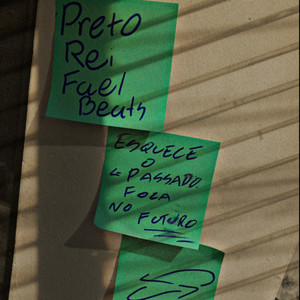 Preto
Rei
Fael
Beats
ESQUECE
O
PASSADO
FOCA
NO FUTURO